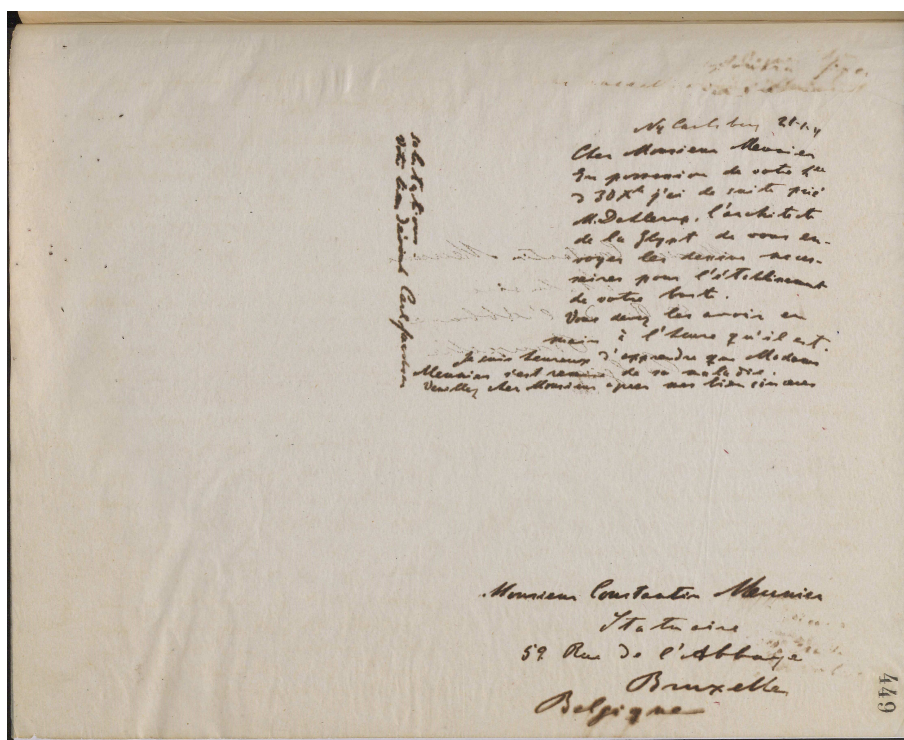 Ny Carlsberg
Cher Monsieur Meunier
En possession de votre
30 Xb j'ai de suite prié
M. Dahlerup, l'architect
de la Glypt de vous en-
voyer les dessins neces-
saires pour l'établissement
de votre bust.
Vous devez les avoir en
main à l'heure qu'il est.
Je suis heureux d'apprendre que Madame
Meunier s'est remise de sa maladie.
Veuillez cher Monsieur agréer mes bien sinceres
salutations
Votre bien dévoué Carl Jacobsen
Monsieur Constantin Meunier
Statuaire
59 Rue de l'Abbaye
Bruxelles
Belgique
449